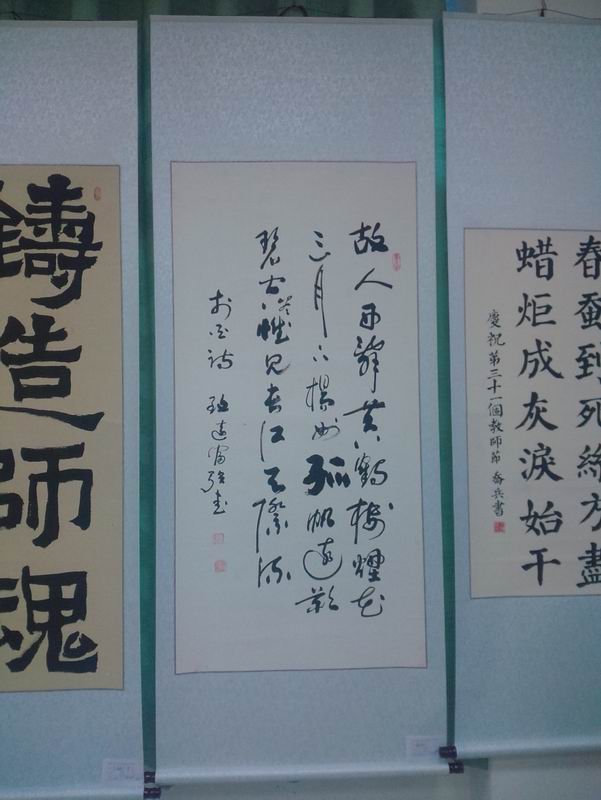 春蚕到死絲方盡
蜡炬成灰淚始干
慶祝第三十一個教師節 喬兵書
故人西辭黄鶴樓煙花
三月下揚州孤帆遠影
碧空尽惟见長江天際流
李白詩
鑄造師魂